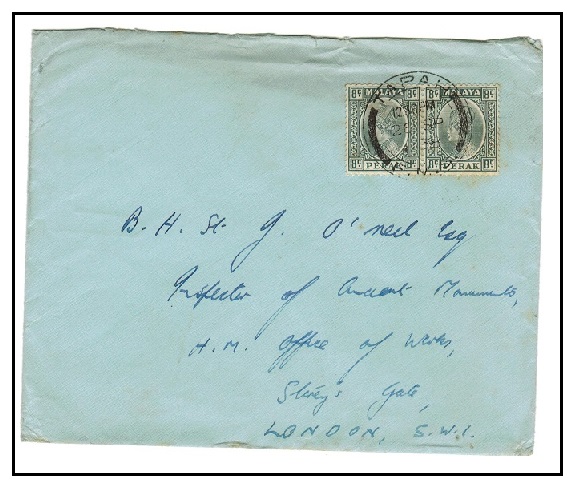 TAPAH
8c MALAYA 8c 8c MALAYA 8c
8c PERAK 8c
B. H. St. J. O'neil Esq
Inspector of Ancient Monuments,
H.M. Office of Works,
Storey's Gate,
LONDON, S.W.1.